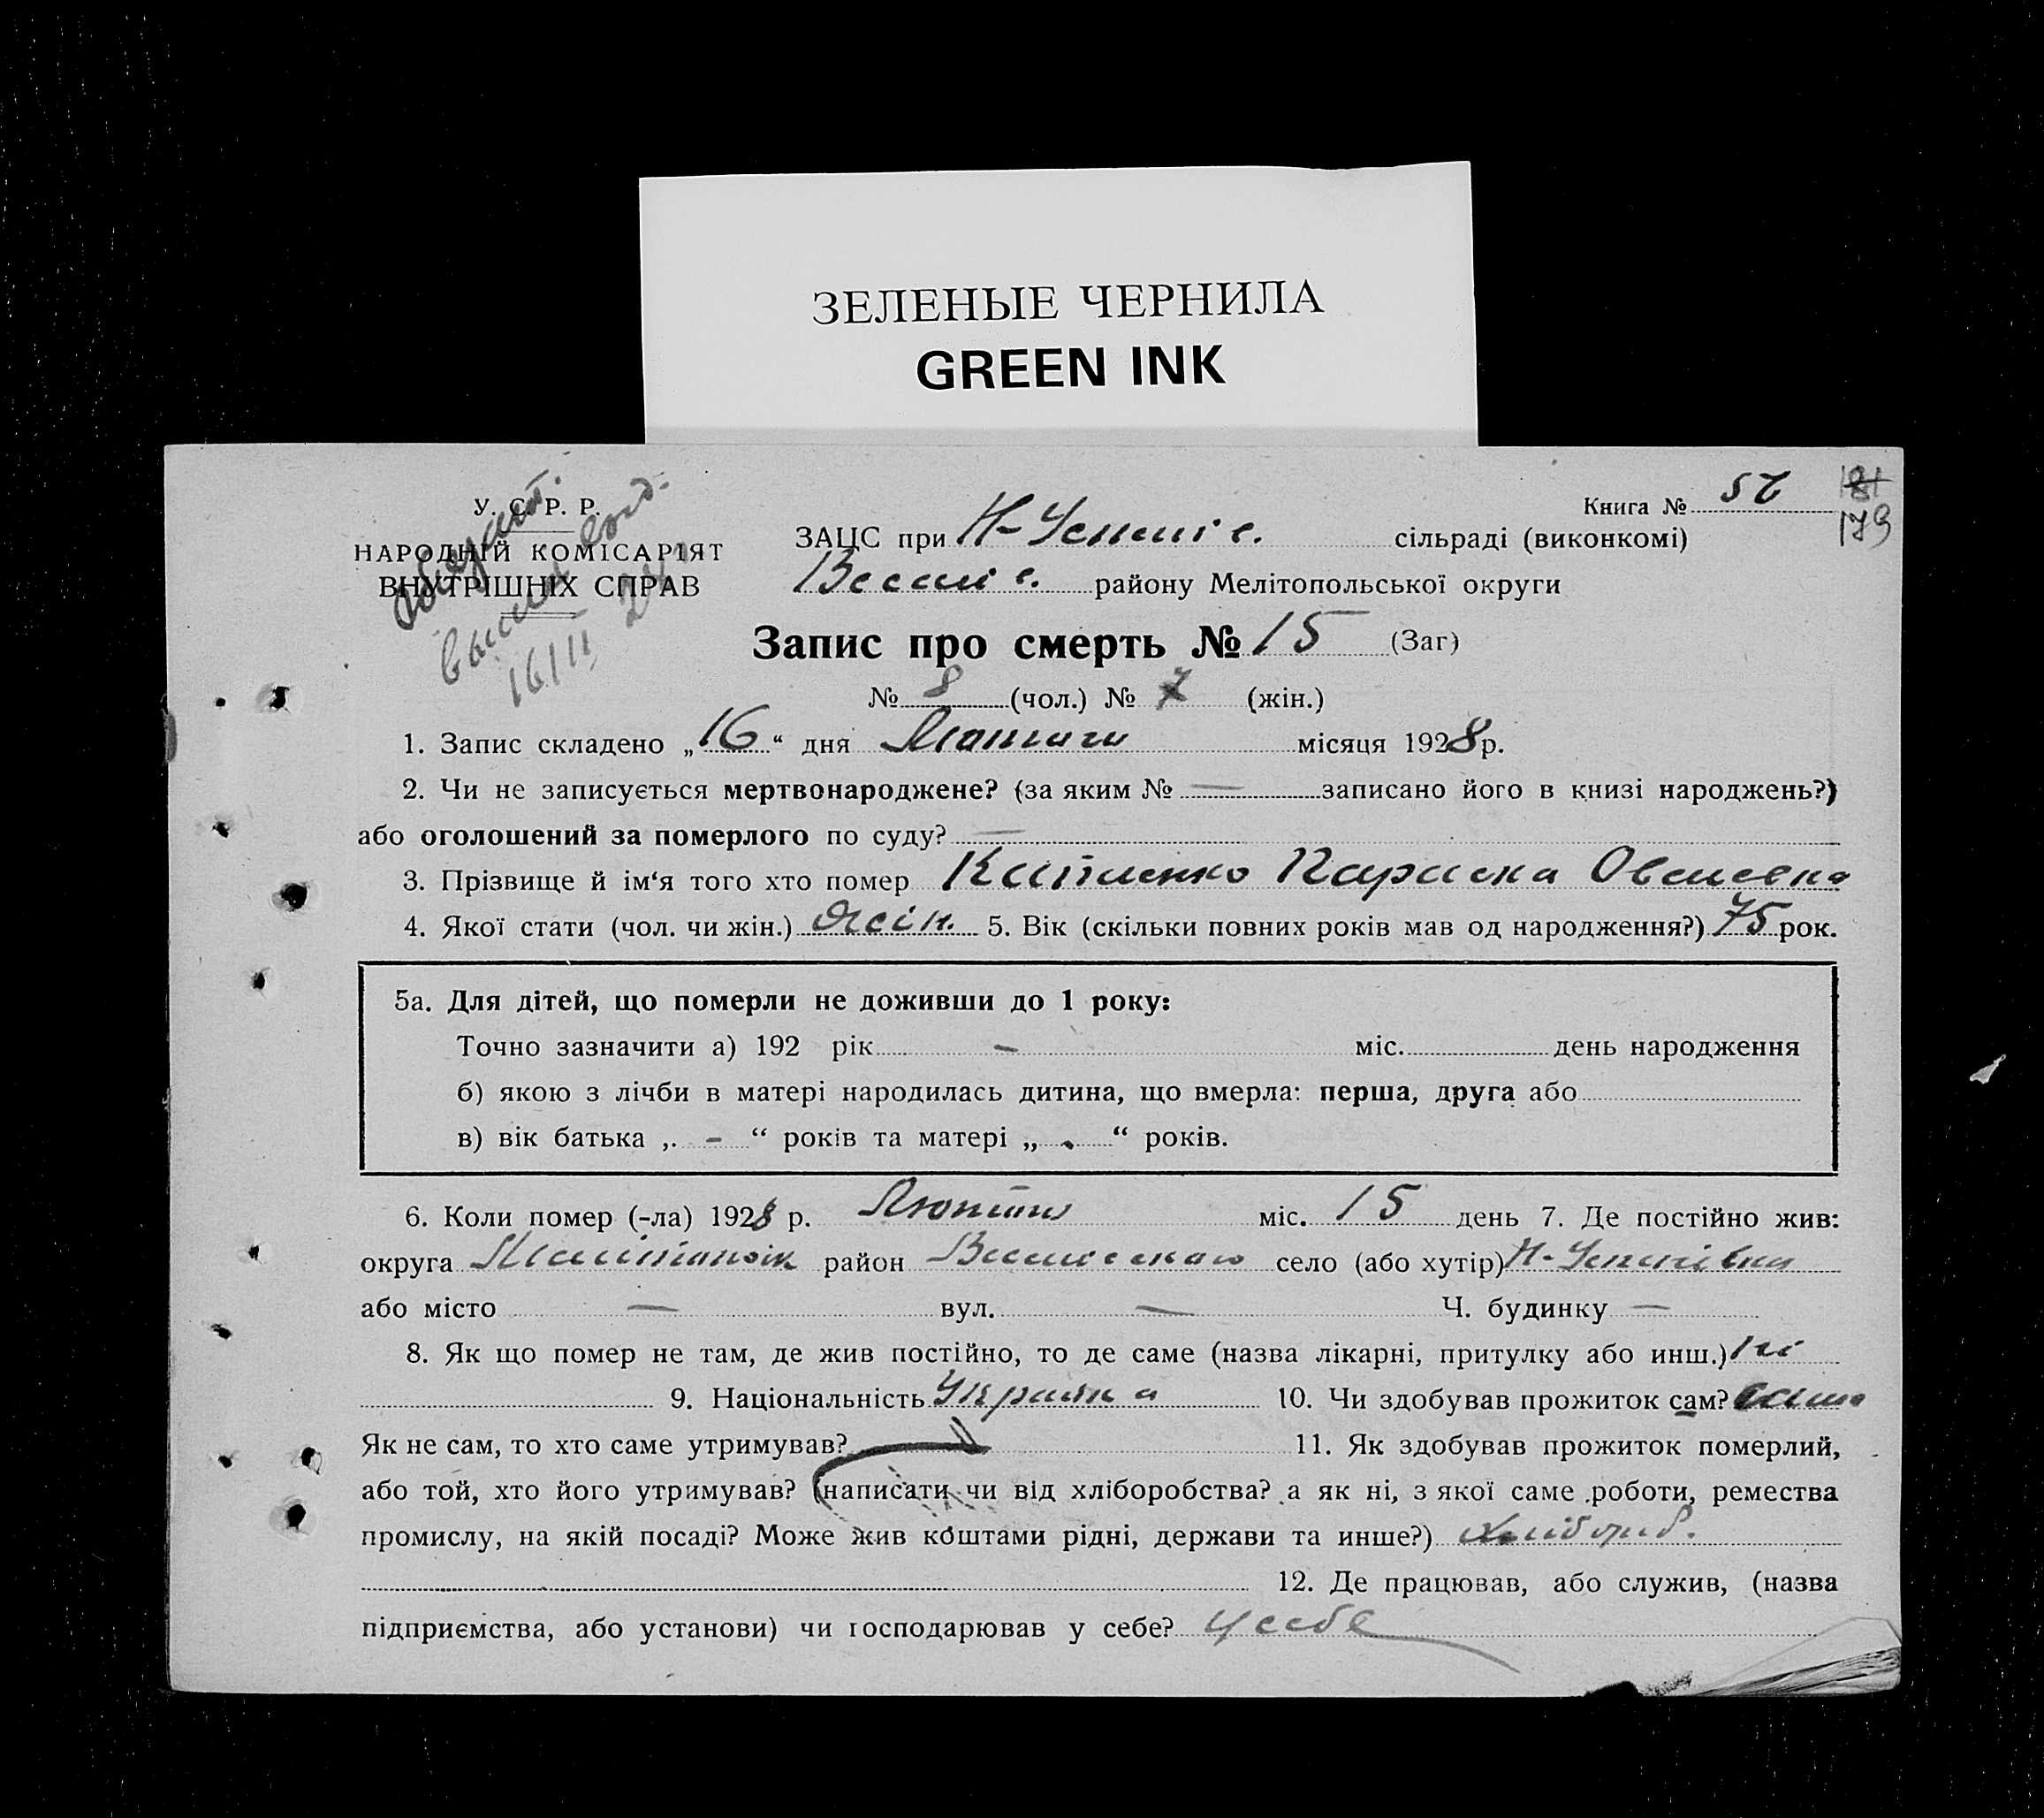 ЗЕЛЕНЫЕ ЧЕРНИЛА
GREEN INK
У. С. Р. Р.
НАРОДНІЙ КОМІСАРІЯТ
ВНУТРІШНІХ СПРАВ
16/II
Книга №
179
ЗАЦС при Н-Успенів. сільраді (виконкомі)
Веселів. району Мелітопольської округи
Запис про смерть № 15 (Заг)
№ 8 (чол.) № 7 (жін.)
1. Запис складено „16“ дня Лютого місяця 1928 р.
2. Чи не записується мертвонароджене? (за яким № — записано його в книзі народжень?)
або оголошений за померлого по суду? —
3. Прізвище й ім‘я того хто помер Параска
4. Якої стати (чол. чи жін.) Жін. 5. Вік (скільки повних років мав од народження?) 75 рок.
5а. Для дітей, що померли не доживши до 1 року:
Точно зазначити а) 192 рік — міс. день народження
б) якою з лічби в матері народилась дитина, що вмерла: перша, друга або
в) вік батька „ - “ років та матері „ “ років.
6. Коли помер (-ла) 1928 р. Лютий міс. 15 день 7. Де постійно жив:
округа район село (або хутір) Н-Успенівка
або місто — вул. — Ч. будинку —
8. Як що помер не там, де жив постійно, то де саме (назва лікарні, притулку або инш.) ні
9. Національність Українка 10. Чи здобував прожиток сам? сама
Як не сам, то хто саме утримував? 11. Як здобував прожиток померлий,
або той, хто його утримував? (написати чи від хліборобства? а як ні, з якої саме роботи, ремества
промислу, на якій посаді? Може жив коштами рідні, держави та инше?) хлібороб.
12. Де працював, або служив, (назва
підприємства, або установи) чи господарював у себе? у себе